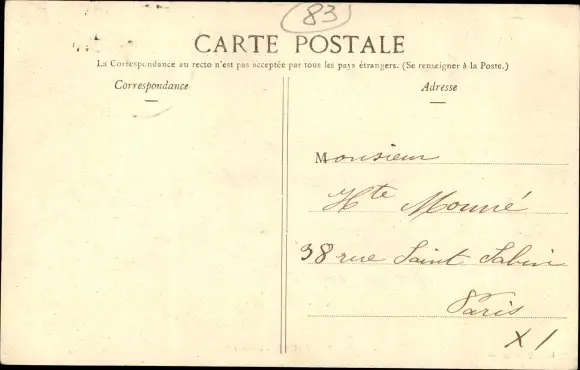 83
CARTE POSTALE
La Correspondance au recto n'est pas acceptée par tous les pays étrangers. (Se renseigner à la Poste.)
Correspondance
Adresse
Monsieur
Hte Mounié
38 rue Saint Sabin
Paris
XI